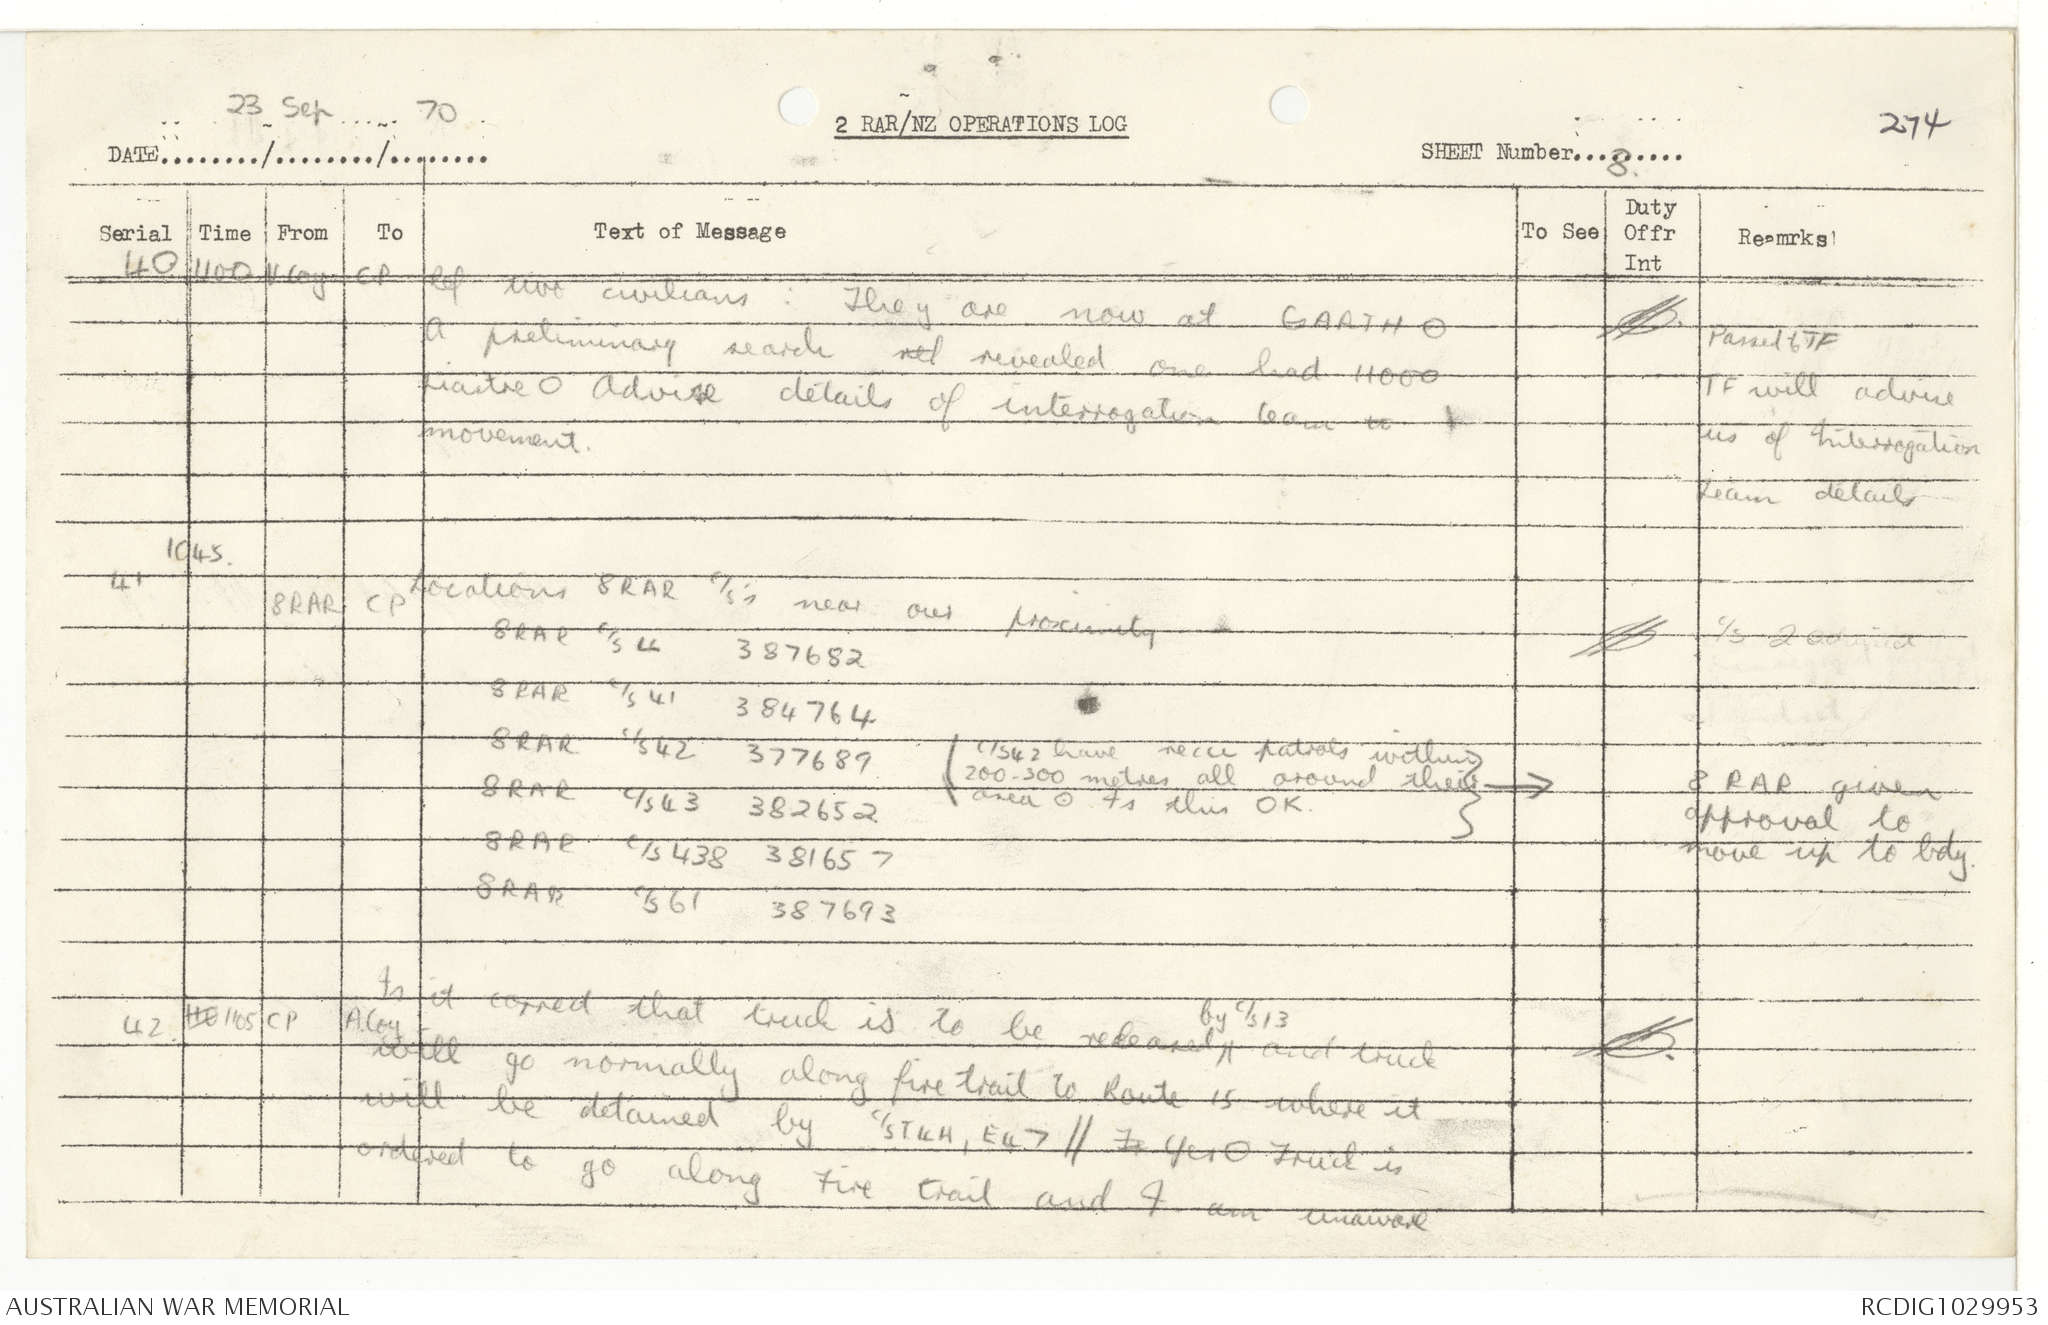 23 Sep 70
DATE......../......../........
2 RAR/NZ OPERATIONS LOG
SHEET Number..........
8.
274
Serial Time From To Text of Message To See Duty Offr Int Reamrks
40 1100 V Coy CP Ref two civilians : They are now at GARTH O
A preliminary search revealed one had 11000
Piastre O Advise details of interrogation team
movement.
Passed to TF
TF will advise
us of Interrogation
team details
41 1045. 8RAR CP Locations 8RAR C/S's near our proximity
8RAR C/S 4 387682
8RAR C/S 41 384764
8RAR C/S42 377689
8RAR C/S43 382652
8RAR C/S438 381657
8RAR C/S61 387693
(C/S42 have recce patrols within
200-300 metres all around their
area O Is this OK.
C/S 2 advised
8 RAR given
approval to
move up to bdy.
42. 1105 CP A.Coy Is it correct that truck is to be released by C/S13 and truck
will go normally along fire trail to Route 15 where it
will be detained by C/ST4H, E47 // Yes O Truck is
ordered to go along Fire trail and I am unaware
AUSTRALIAN WAR MEMORIAL
RCDIG1029953